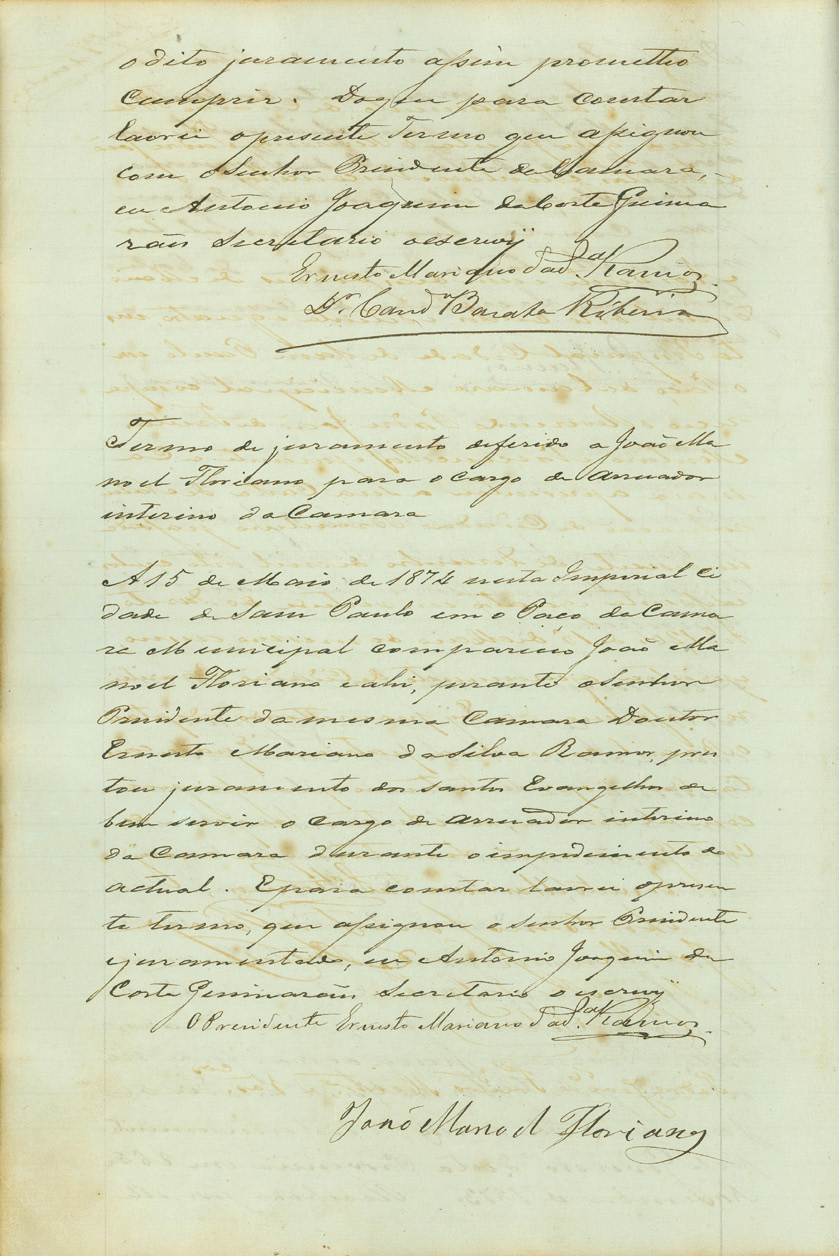 o dito juramento assim prometteo
cumprir. Do que para constar
lavrei o presente Termo que assignou
com o Senhor Presidente da Camara,
eu Antonio Joaquim da Costa Guima
rães Secretario o escrevy
Ernesto Marianno da S.ª Ramos
Dr. Cand.º Barata Ribeiro
Termo de juramento deferido a João Ma
noel Floriano para o cargo de arruador
interino da Camara
A 15 de Maio de 1874 nesta Imperial Ci
dade de Sam Paulo em o Paço da Cama
ra Municipal compareceo João Ma
noel Floriano e ahi, perante o Senhor
Presidente da mesma Camara Doutor
Ernesto Mariano da Silva Ramos, pres
tou juramento dos santos Evangelhos de
bem servir o cargo de arruador interino
da Camara durante o impedimento do
actual. E para constar lavrei o presen
te termo, que assignou o Senhor Presidente
e juramentado, eu Antonio Joaquim da
Costa Guimarães Secretario o escrevy
O Presidente Ernesto Mariano da S.ª Ramos
João Manoel Floriano